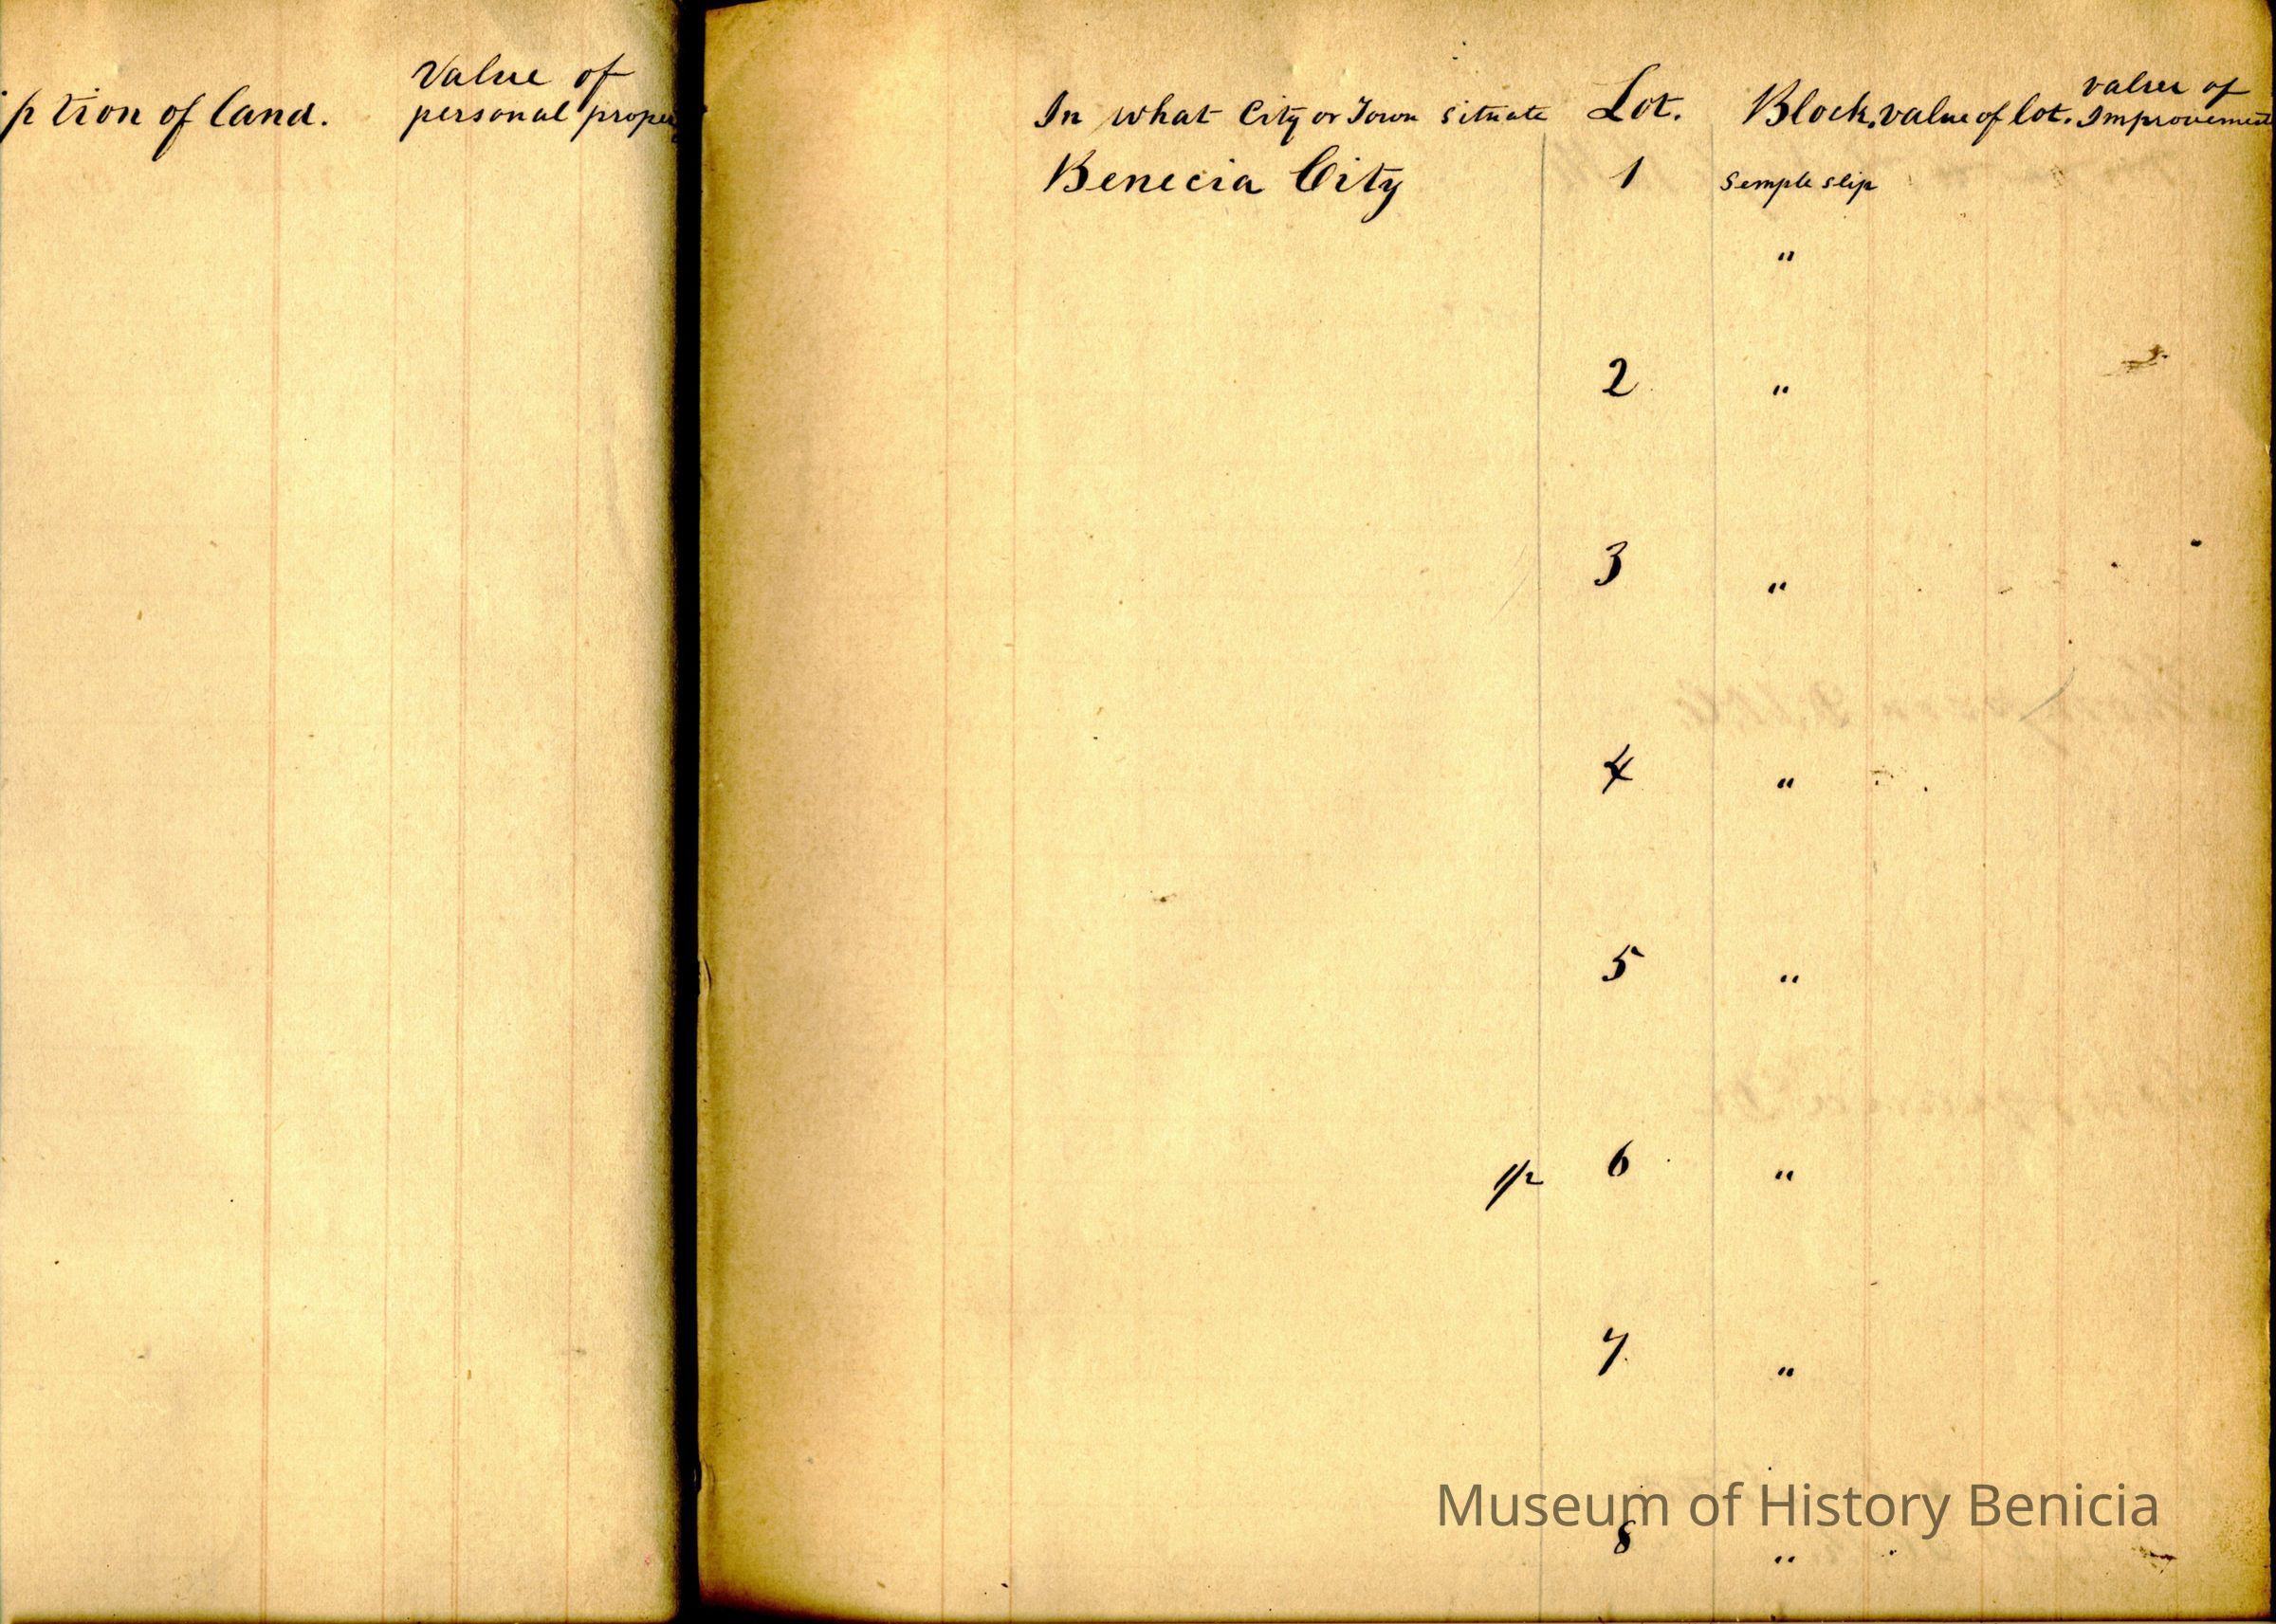 ption of land.
Value of
personal proper
In what City or Town situate Lot. Block. value of lot. value of Improvement
Benecia City 1 Semple slip
"
2 "
3 "
4 "
5 "
1/2 6 "
7 "
8 "
Museum of History Benicia